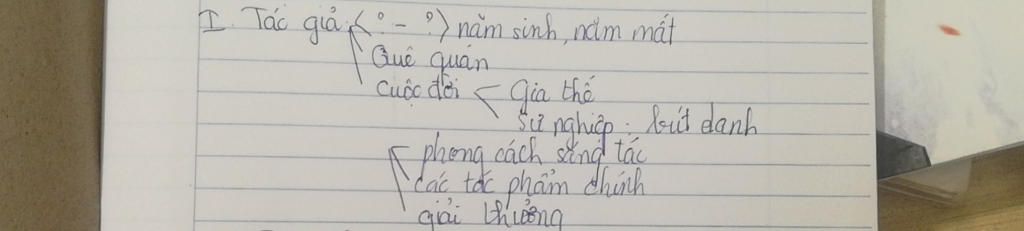 I. Tác giả: (? - ?) năm sinh, năm mất
Quê quán
Cuộc đời < Gia thế
Sự nghiệp: bút danh
phong cách sáng tác
các tác phẩm chính
giải thưởng